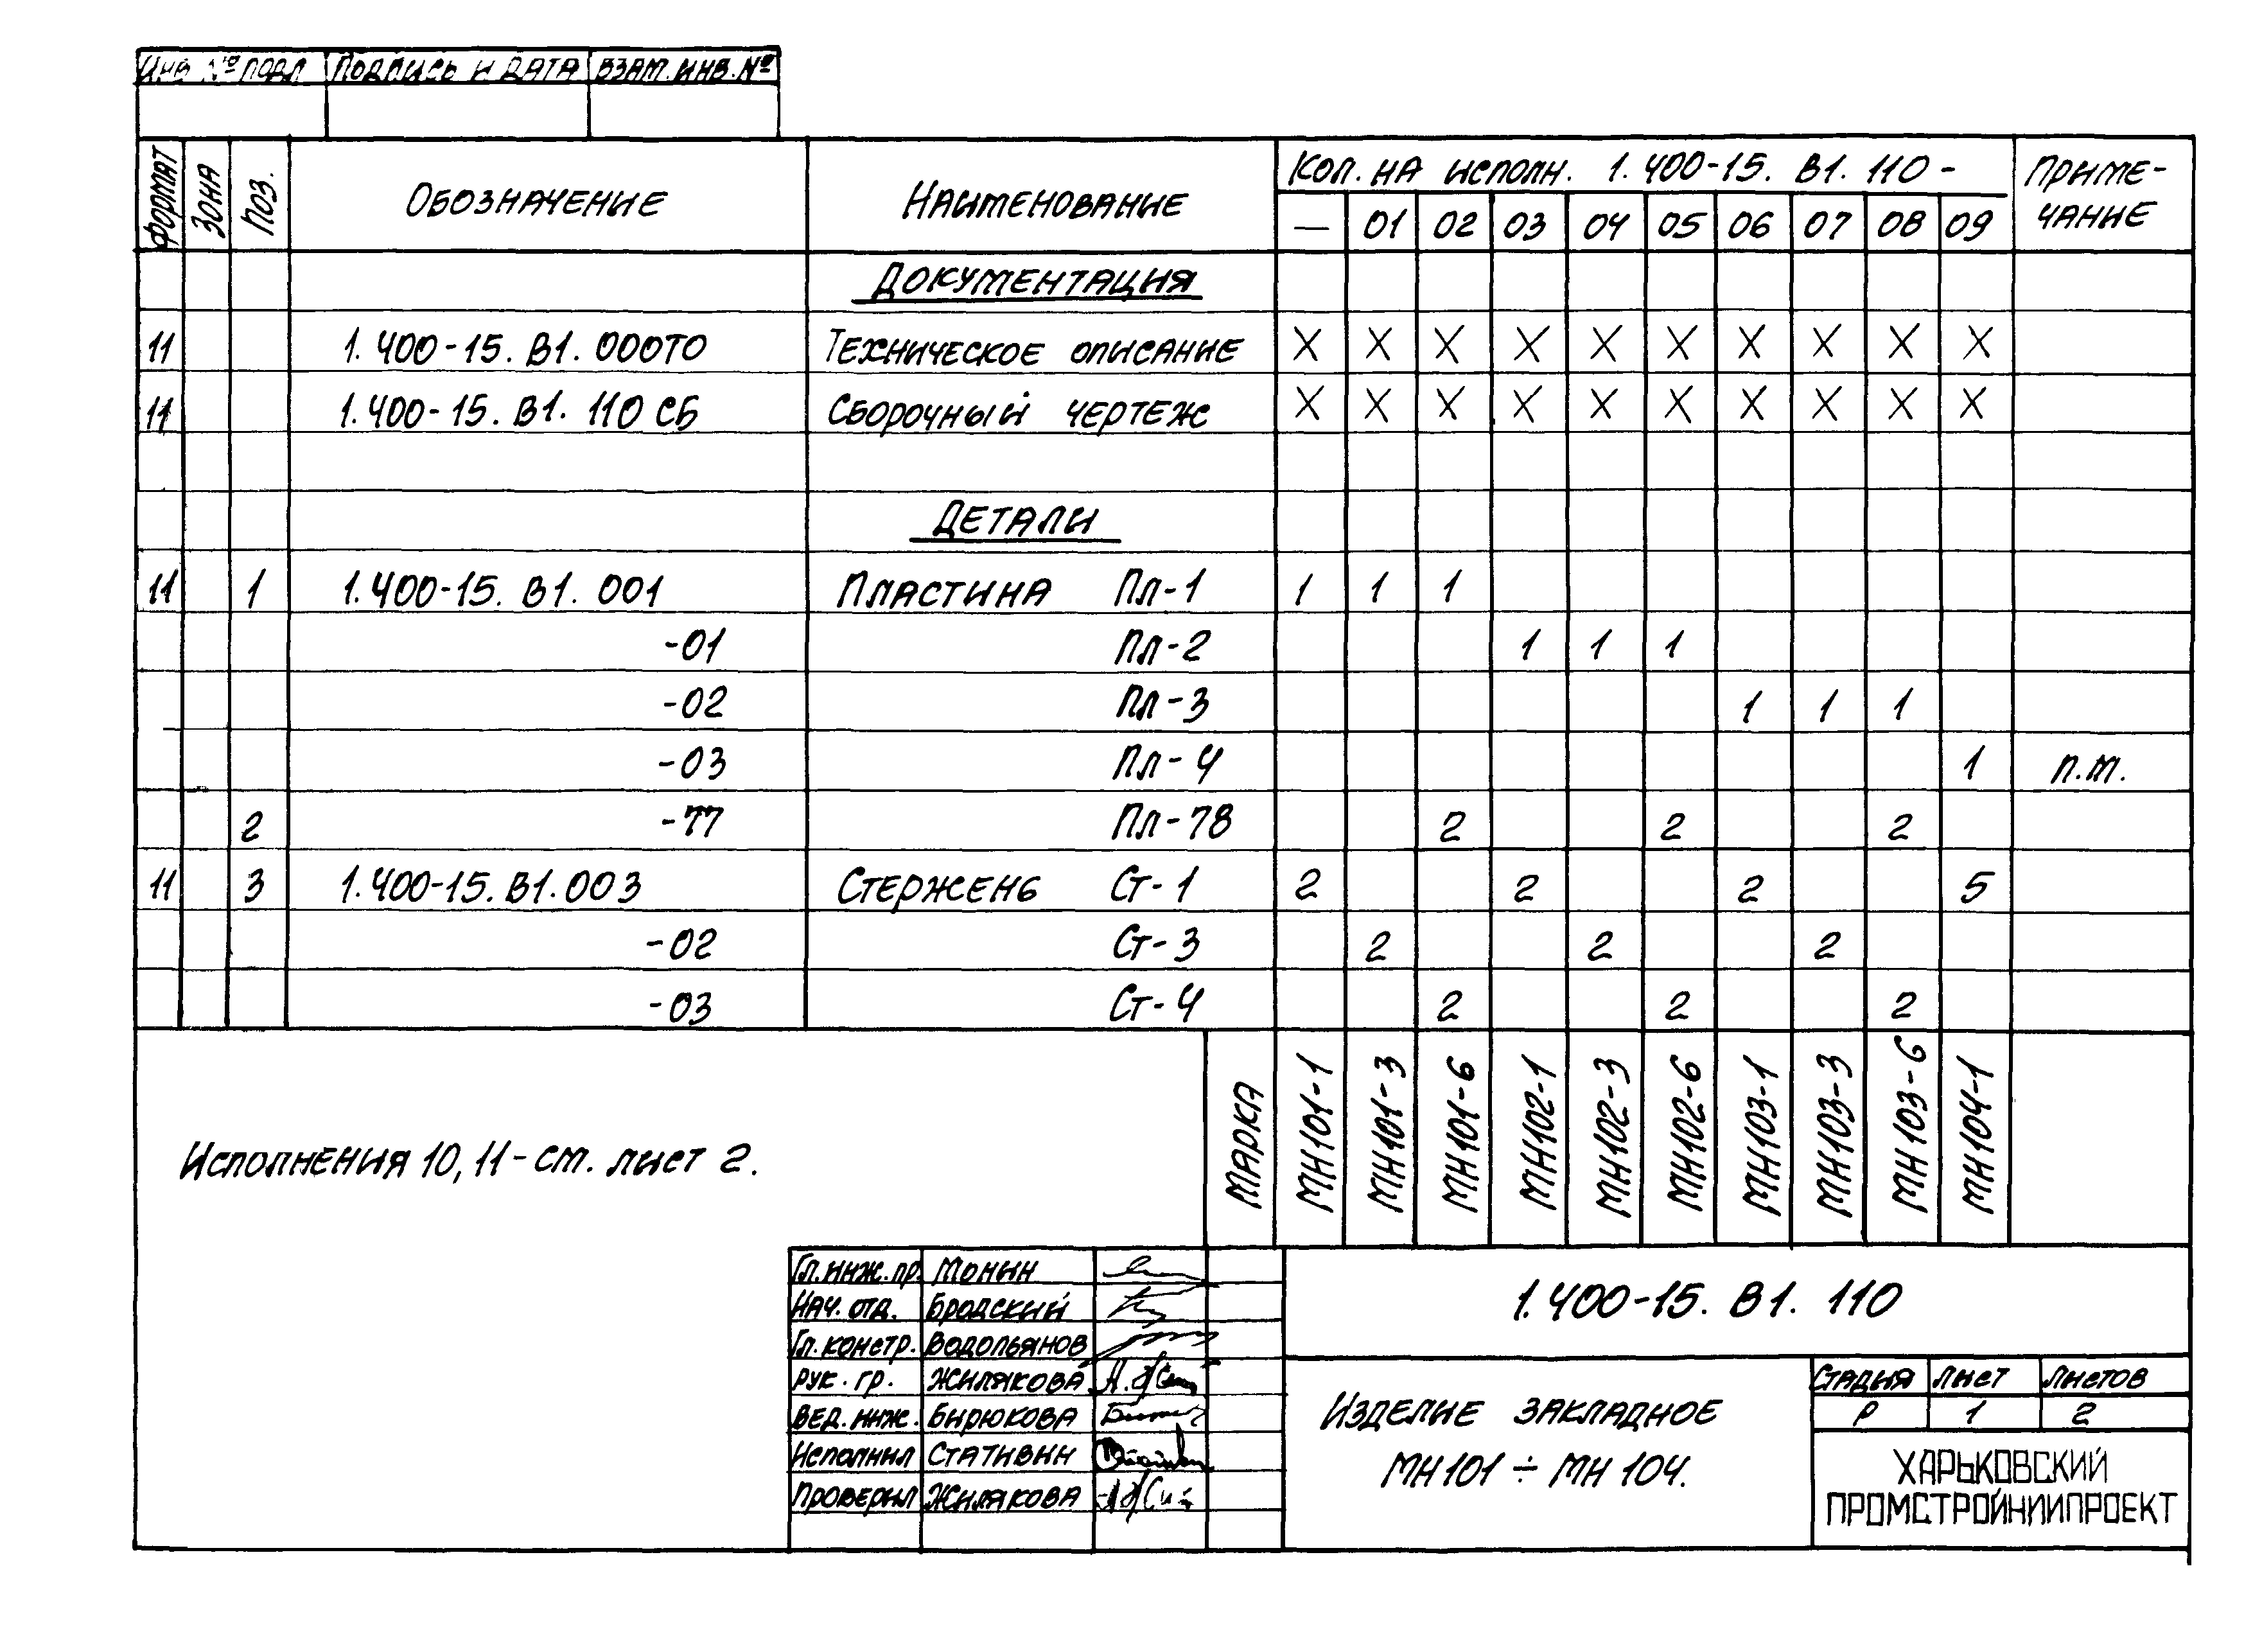 ИНВ № ПОДЛ ПОДПИСЬ И ДАТА ВЗАМ. ИНВ. №
ФОРМАТ ЗОНА ПОЗ. ОБОЗНАЧЕНИЕ НАИМЕНОВАНИЕ КОЛ. НА ИСПОЛН. 1.400-15. В1. 110 - ПРИМЕ-
ЧАНИЕ
— 01 02 03 04 05 06 07 08 09
ДОКУМЕНТАЦИЯ
11 1.400-15. В1. 000ТО ТЕХНИЧЕСКОЕ ОПИСАНИЕ X X X X X X X X X X
11 1.400-15. В1. 110 СБ СБОРОЧНЫЙ ЧЕРТЕЖ X X X X X X X X X X
ДЕТАЛИ
11 1 1.400-15. В1. 001 ПЛАСТИНА Пл-1 1 1 1
-01 Пл-2 1 1 1
-02 Пл-3 1 1 1
-03 Пл-4 1 п.м.
2 -77 Пл-78 2 2 2
11 3 1.400-15. В1. 003 СТЕРЖЕНЬ Ст-1 2 2 2 5
-02 Ст-3 2 2 2
-03 Ст-4 2 2 2
МАРКА МН101-1 МН101-3 МН101-6 МН102-1 МН102-3 МН102-6 МН103-1 МН103-3 МН103-6 МН104-1
ИСПОЛНЕНИЯ 10, 11 - см. лист 2.
Гл. инж. пр. Монин
Нач. отд. Бродский
Гл. констр. Водопьянов
Рук. гр. Жилякова
Вед. инж. Бирюкова
Исполнил Стативин
Проверил Жилякова
1.400-15. В1. 110
ИЗДЕЛИЕ ЗАКЛАДНОЕ
МН101 ÷ МН 104.
Стадия Лист Листов
Р 1 2
ХАРЬКОВСКИЙ
ПРОМСТРОЙНИИПРОЕКТ